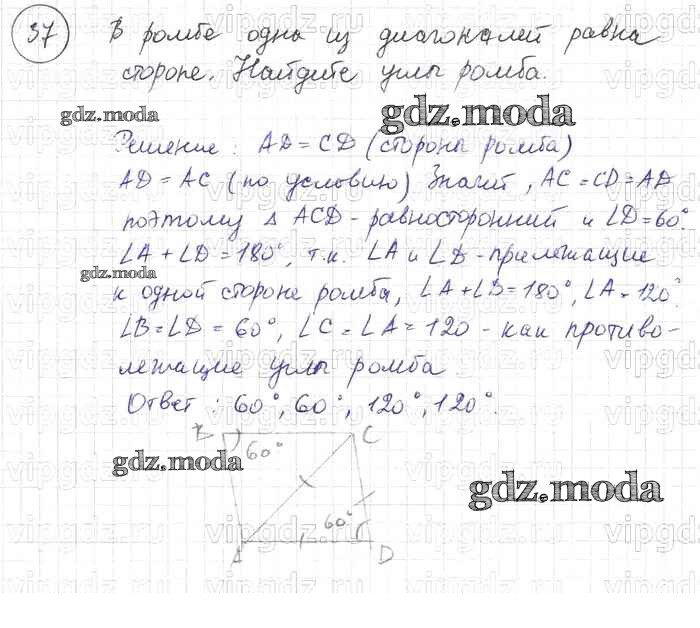 37 В ромбе одна из диагоналей равна
стороне. Найдите углы ромба.
gdz.moda gdz.moda
Решение: AD = CD (стороны ромба)
AD = AC (по условию) Значит, AC = CD = AD
поэтому Δ ACD - равносторонний и ∠D = 60°.
∠A + ∠D = 180°, т.к. ∠A и ∠D - прилежащие
gdz.moda
к одной стороне ромба, ∠A + ∠D = 180°, ∠A = 120°
∠B = ∠D = 60°, ∠C = ∠A = 120 - как противо-
лежащие углы ромба
Ответ: 60°, 60°, 120°, 120°.
B C
60°
gdz.moda
gdz.moda
60°
A D
vipgdz.ru